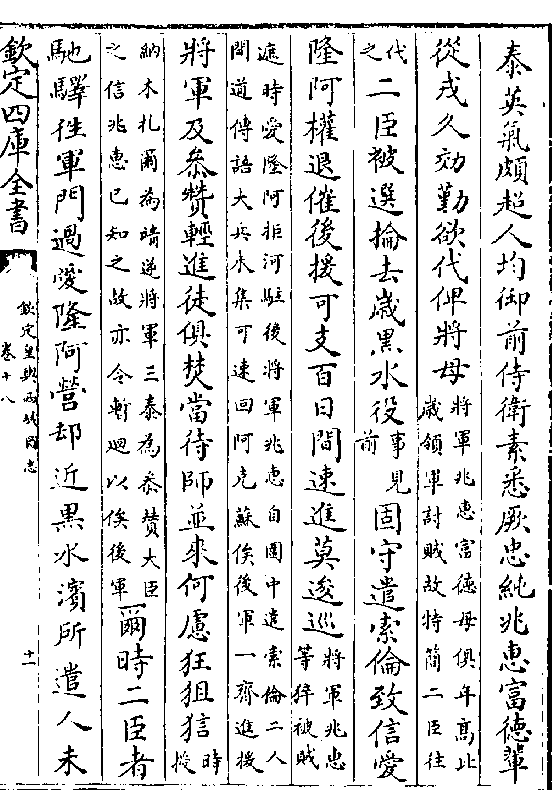 泰英氣頗超人均御前侍衛素悉厥忠純兆惠富德輩
從戎久効勤欲代俾將母將軍兆惠富德母俱年高此
歲領軍討賊故特簡二臣往
代之二臣被選掄去歲黒水役事見前固守遣索倫致信愛
隆阿權退催後援可支百日間速進莫逡巡將軍兆惠
等猝被賊
遮時愛隆阿拒河駐後將軍兆惠自圍中遣索倫二人
間道傳語大兵未集可速回阿克蘇俟後軍一齊進援
將軍及叅贊輕進徒俱焚當待師並來何慮狂狙狺時授
納木札爾為靖逆將軍三泰為叅贊大臣
之信兆惠已知之故亦令暫迴以俟後軍爾時二臣者
馳驛徃軍門過愛隆阿營却近黒水濱所遣人未
欽定四庫全書
欽定皇輿西域圖志
卷十八
十一